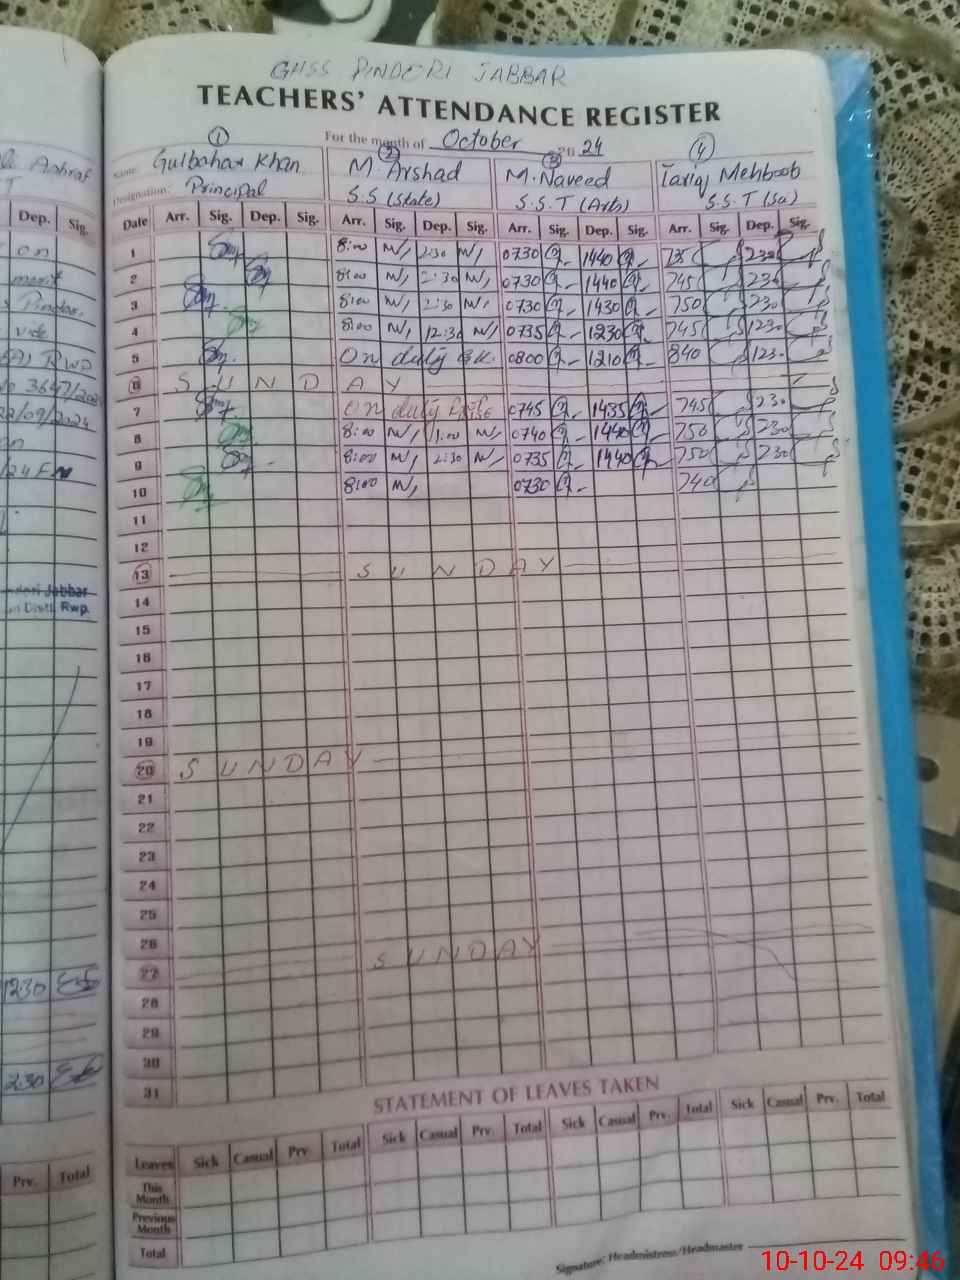 GHSS PINDERI JABBAR
TEACHERS' ATTENDANCE REGISTER
For the month of October 2024
1 2 3 4
Name: Gulbahar Khan M. Arshad M. Naveed Tariq Mehboob
Designation: Principal S.S (State) S.S.T (Arb) S.S.T (Sci)
Date Arr. Sig. Dep. Sig. Arr. Sig. Dep. Sig. Arr. Sig. Dep. Sig. Arr. Sig. Dep. Sig.
1 8:00 2:30 0730 1440 735 230
2 8:00 2:30 0730 1440 745 230
3 8:00 2:30 0730 1430 750 230
4 8:00 12:30 0735 1230 745 1230
5 On duty 0800 1210 840 123
6 SUNDAY
7 On duty 0745 1435 745 230
8 8:00 1:00 0740 1440 750 230
9 8:00 2:30 0735 1440 750 230
10 8:00 0730 740
11
12
13 SUNDAY
14
15
16
17
18
19
20 SUNDAY
21
22
23
24
25
26
27 SUNDAY
28
29
30
31
STATEMENT OF LEAVES TAKEN
Leaves Sick Casual Prv. Total Sick Casual Prv. Total Sick Casual Prv. Total Sick Casual Prv. Total
This Month
Previous Month
Total
Signature: Headmistress/Headmaster
Ashraf
Dep. Sig.
on
merit
Pindori
vide
RWP
3647/20
22/09/2024
Jabbar
Distt. Rwp.
1230
230
Prv. Total
10-10-24 09:46